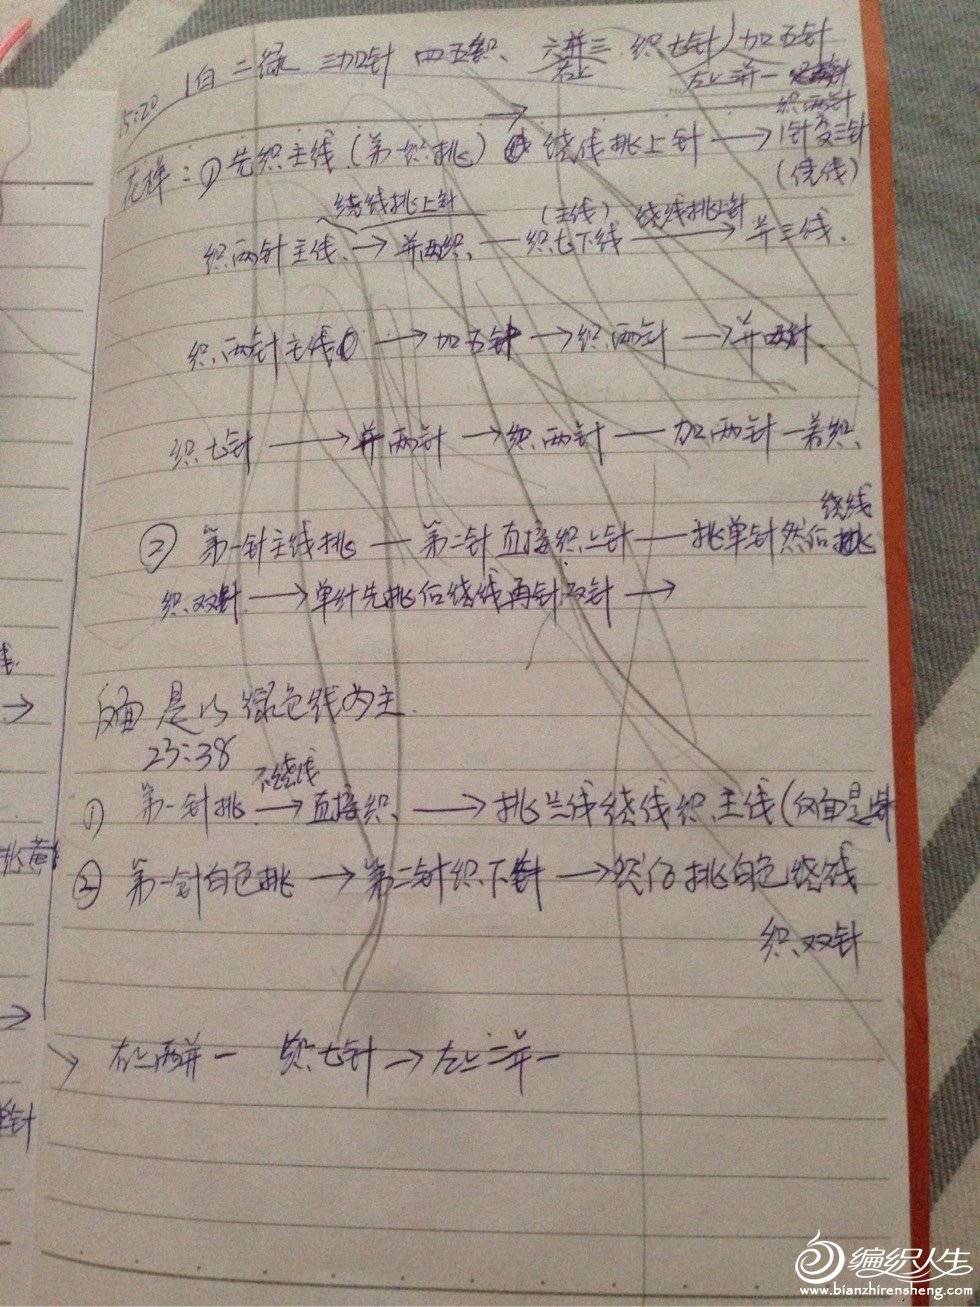 1白 二绿 三加针 四五织、 六并三 织七针 加五针
右上 左上三并一
织两针
15:20
花样:① 先织主线(第一织挑) → 绕线挑上针 → 1针变三针
(绕线)
绕线挑上针 (主线) 绕线挑上针
织两针主线 → 并两织、— 织七下线 → 并三线.
织两针主线 → 加五针 → 织两针 → 并两针.
织七针 → 并两针 → 织两针 — 加两针 一若织、
绕线
② 第一针主线挑 — 第二针直接织上针 — 挑单针然后挑
织双针 → 单针先挑后绕线再针双针 →
反面是以绿色线为主.
23:38
不绕线
① 第一针挑 → 直接织、 → 挑兰线绕线织主线(反面是
② 第一针白色挑 → 第二针织下针 → 然后挑白色绕线
织双针
右上两并一 织七针 → 左上三并一
挑黄
针
编织人生
www.bianzhirensheng.com